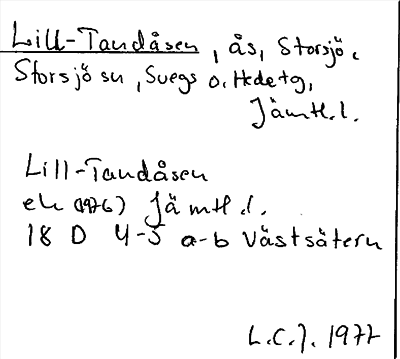 Lill-Tandåsen, ås, Storsjö,
Storsjö sn, Svegs o. Hede tg,
Jämtl. l.
Lill-Tandåsen
ek (1976) Jämtl. l.
18 D 4-5 a-b Västsätern
L.C.J. 1977